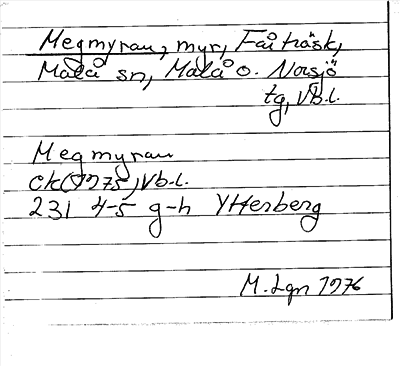 Megmyran, myr, Fårträsk,
Malå sn, Malå o. Norsjö
tg, Vb.l.
Megmyran
Ek(1975) Vb.l.
231 4-5 g-h Ytterberg
M. Lgn 1976